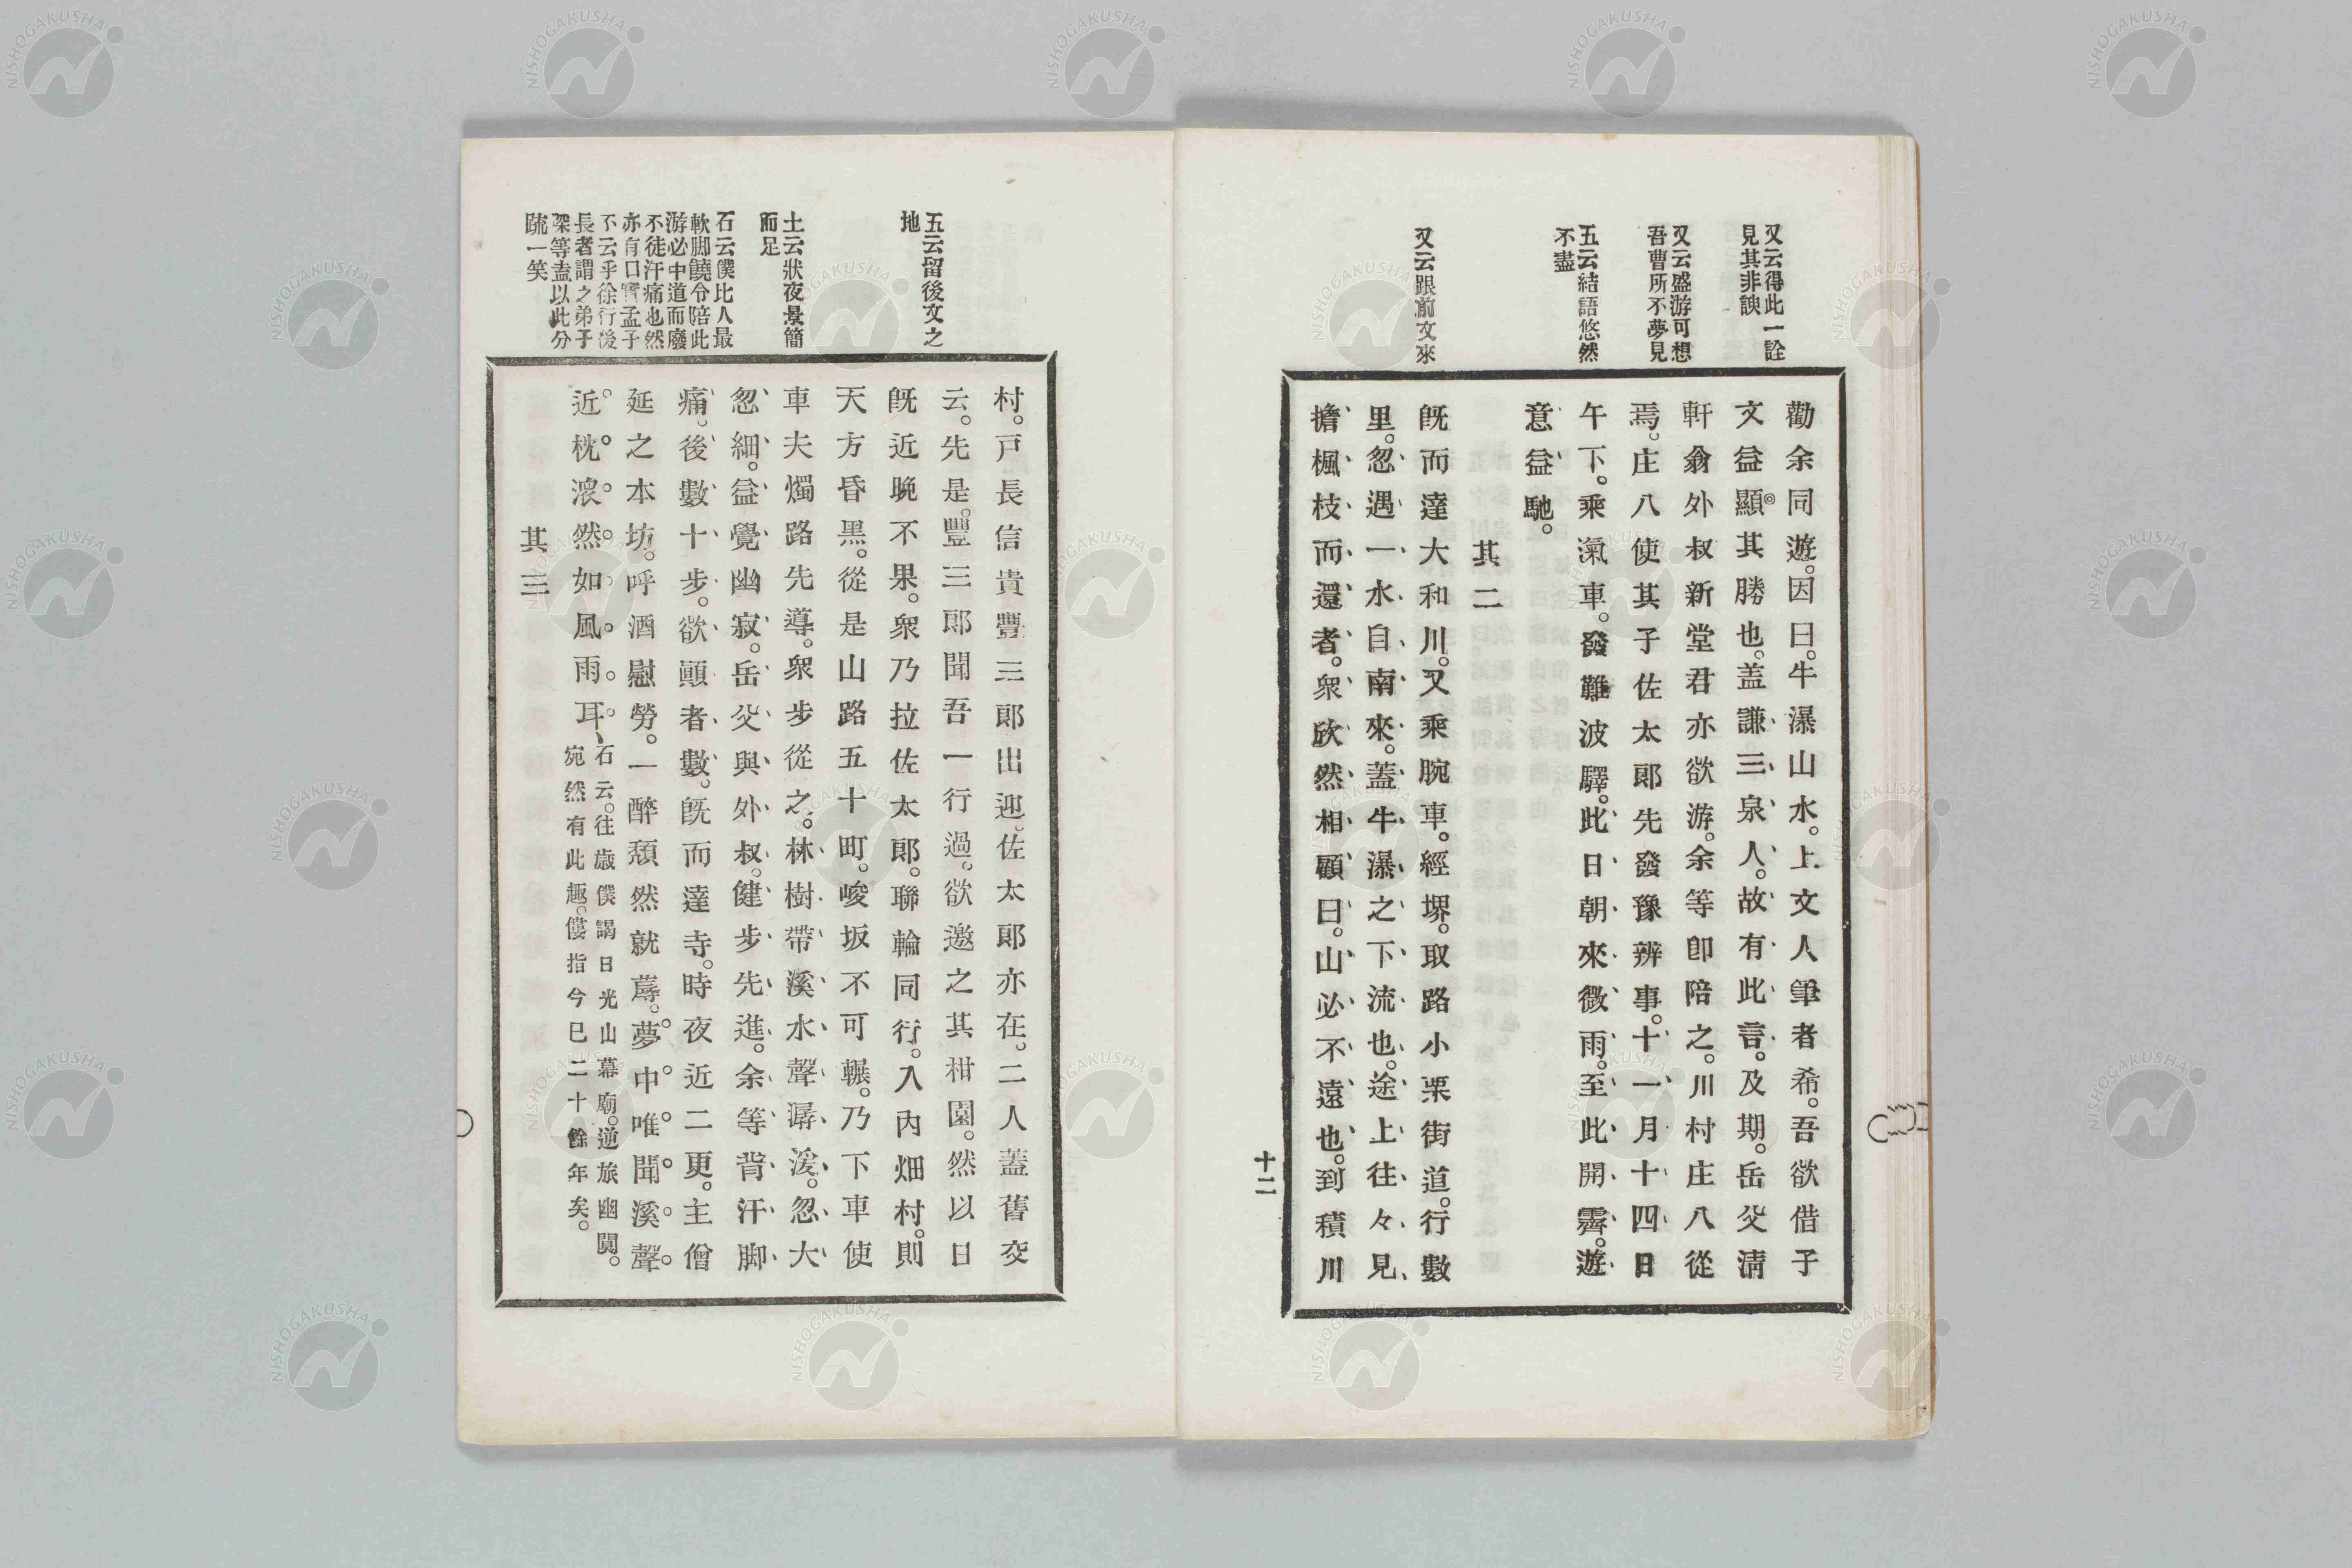 又云得此一詮
見其非諛
又云盛游可想
吾曹所不夢見
五云結語悠然
不盡
又云跟前文來
勸余同遊。因曰。牛瀑山水。上文人筆者希。吾欲借子
文益顯其勝也。蓋謙三泉人。故有此言。及期。岳父淸
軒翁外叔新堂君亦欲游。余等卽陪之。川村庄八從
焉。庄八使其子佐太郞先發豫辨事。十一月十四日
午下。乘滊車。發難波驛。此日朝來微雨。至此開霽。遊
意益馳。
其二
旣而達大和川。又乘腕車。經堺。取路小栗街道。行數
里。忽遇一水自南來。蓋牛瀑之下流也。途上往々見
擔楓枝而還者。衆欣然相顧曰。山必不遠也。到積川
十二
五云留後文之
地
土云狀夜景簡
而足
石云僕比人最
軟脚饒令陪此
游必中道而廢
不徒汗痛也然
亦有口實孟子
不云乎徐行後
長者謂之弟子
琹等盍以此分
疏一笑
村。戸長信貴豐三郞出迎。佐太郞亦在。二人蓋舊交
云。先是。豐三郞聞吾一行過。欲邀之其柑園。然以日
旣近晚不果。衆乃拉佐太郞。聯輪同行。入內畑村。則
天方昏黑。從是山路五十町。峻坂不可輾。乃下車使
車夫燭路先導。衆步從之。林樹帶溪。水聲潺湲。忽大
忽細。益覺幽寂。岳父與外叔。健步先進。余等背汗脚
痛。後數十步。欲顚者數。旣而達寺。時夜近二更。主僧
延之本坊。呼酒慰勞。一醉頹然就蓐。夢中唯聞溪聲
近枕。滾然如風雨耳、
石云。往歲僕謁日光山幕廟。逆旅幽闃。
宛然有此趣。僂指今已二十餘年矣。
其三